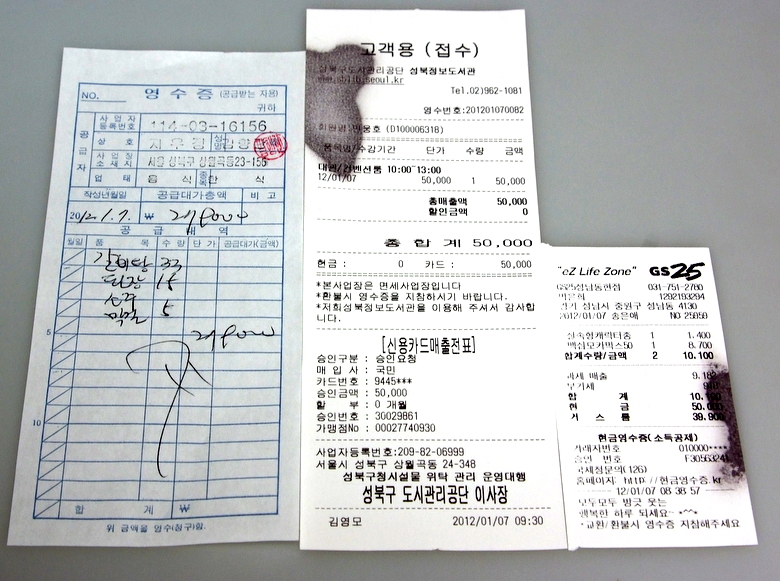 NO.
영수증 (공급받는 자용)
귀하
공급자
사업자 등록번호 114-03-16156
상호
사업장 소재지 서울 성북구 상월곡동23-155
업태 음식 종목 한식
작성년월일 공급대가총액 비고
2012.1.7. ₩
공급내역
월일 품목 수량 단가 공급대가(금액)
갈비탕 33
소주
5
10
합계 ₩
위 금액을 영수(청구)함.
고객용 (접수)
성북구도시관리공단 성북정보도서관
Tel.02)962-1081
영수번호:201201070082
(D100006318)
품목명/수강기간 단가 수량 금액
10:00~13:00
12/01/07 50,000 1 50,000
총매출액 50,000
할인금액 0
총 합 계 50,000
현금 : 0 카드 : 50,000
*본사업장은 면세사업장입니다
*환불시 영수증을 지참하시기 바랍니다.
*저희성북정보도서관을 이용해 주셔서 감사합
니다.
[신용카드매출전표]
승인구분 : 승인요청
매 입 사 : 국민
카드번호 : 9445***
승인금액 : 50,000
할 부 : 0 개월
승인번호 : 30029861
가맹점No : 00027740930
사업자등록번호:209-82-06999
서울시 성북구 상월곡동 24-348
성북구청시설물 위탁 관리 운영대행
성북구 도시관리공단 이사장
김영모 2012/01/07 09:30
"eZ Life Zone" GS25
GS25성남동현점 031-751-2780
1292193294
경기 성남시 중원구 성남동 4130
2012/01/07 송은애 NO 25859
1 1.400
맥심모카믹스50 1 8.700
합계수량/금액 2 10.100
과세 매출
부가세
합 계
현 금
거 스 름 39.900
현금영수증(소득공제)
거래자번호 010000****
승인 번호
국세청문의(126)
홈페이지: http://현금영수증.kr
12/01/07 08 38 57
모두모두 방긋 웃는
행복한 하루 되세요~ *^^*
*교환/환불시 영수증 지참해주세요